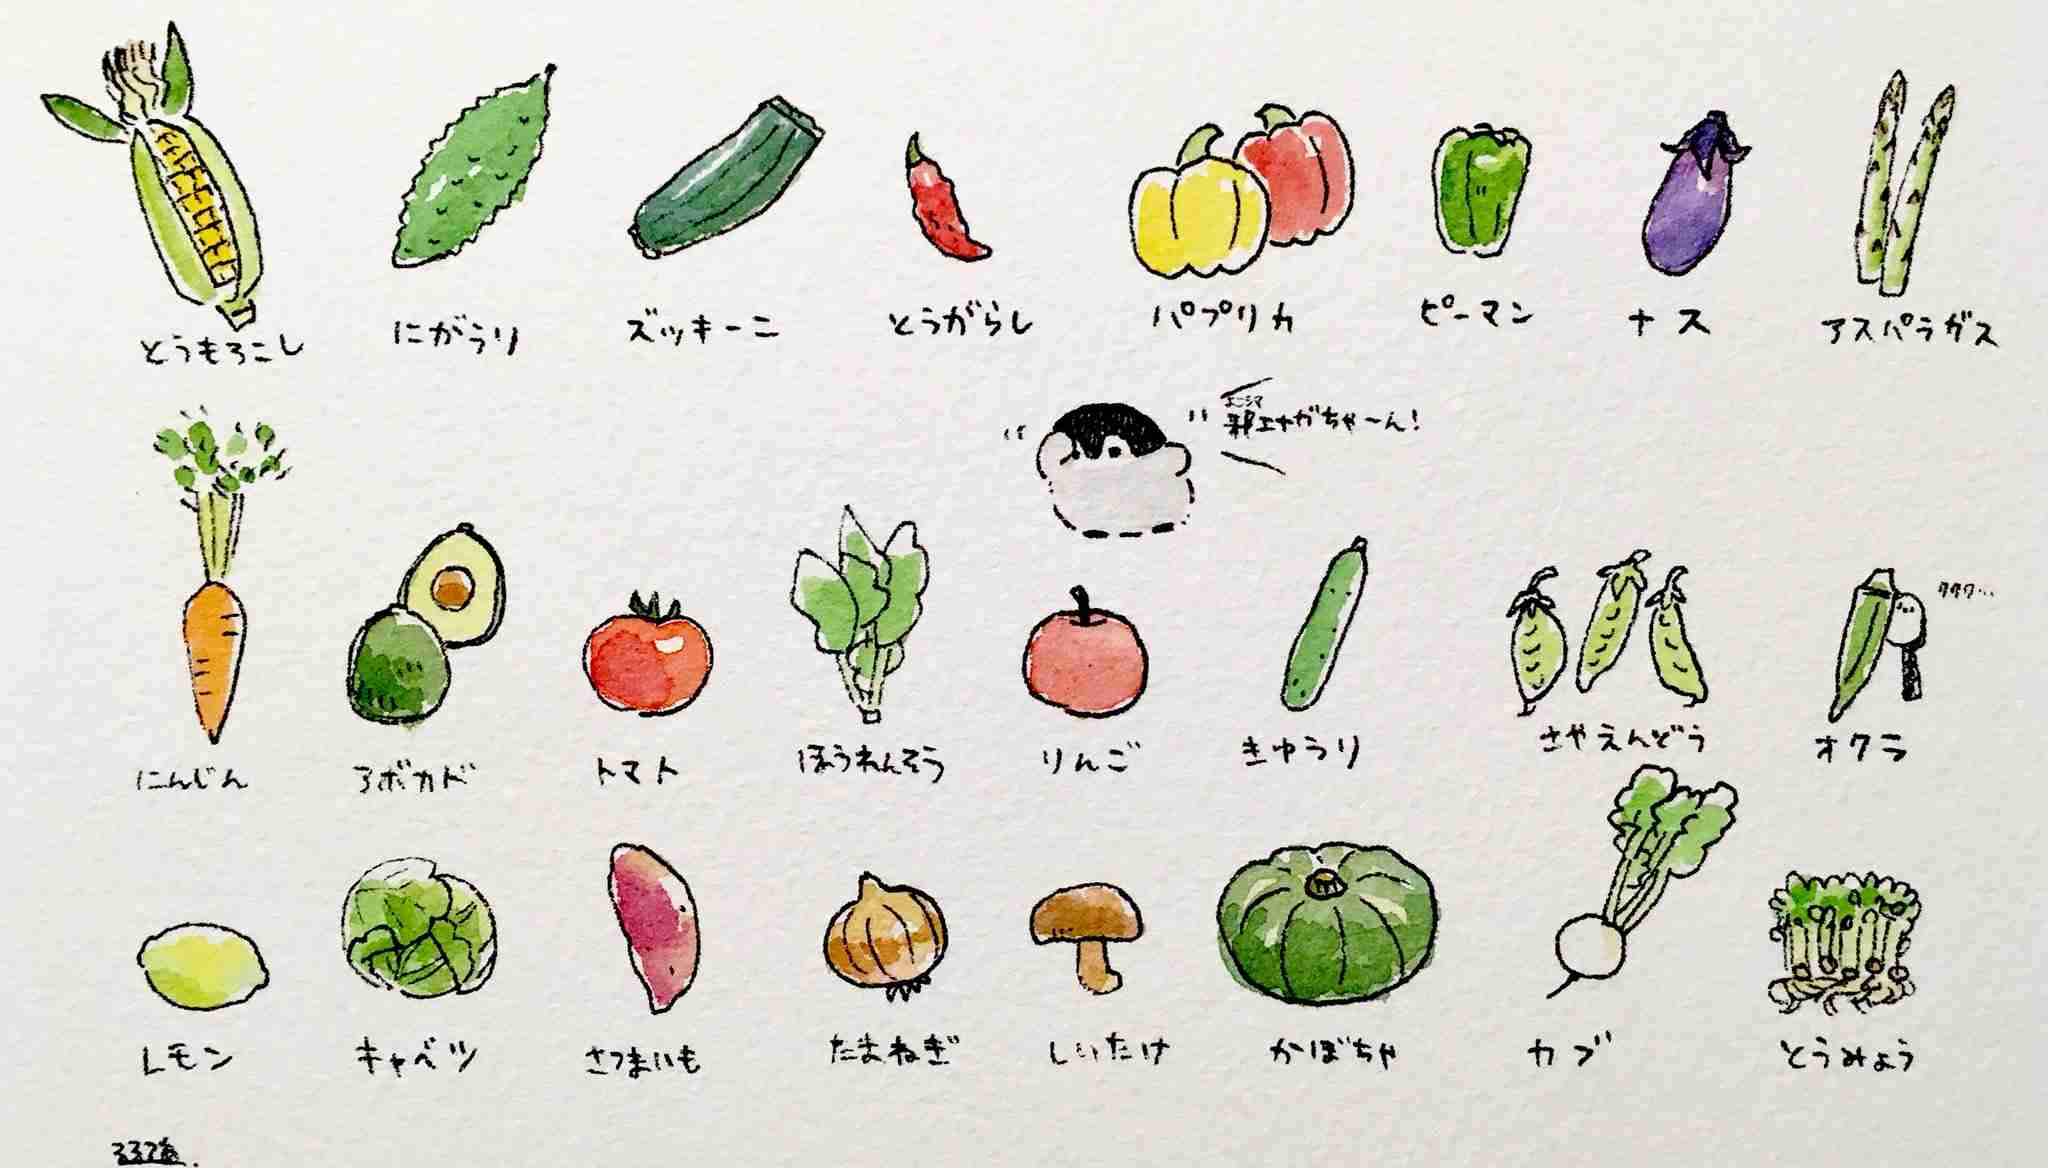 とうもろこし
にがうり
ズッキーニ
とうがらし
パプリカ
ピーマン
ナス
アスパラガス
エナガちゃーん!
にんじん
アボカド
トマト
ほうれんそう
りんご
きゅうり
さやえんどう
オクラ
レモン
キャベツ
さつまいも
たまねぎ
しいたけ
かぼちゃ
カブ
とうみょう